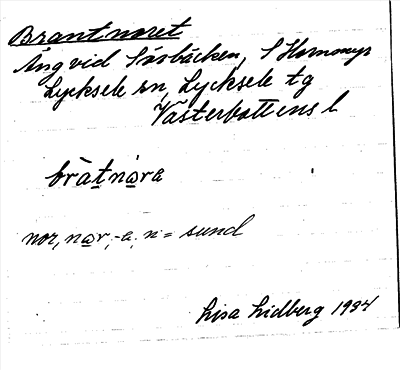 Brantnoret
Äng vid Sörbäcken, S Hornmyr
Lycksele sn, Lycksele tg
Västerbottens l
bràtnåra
nor, når, -a, n = sund
Lisa Lidberg 1934